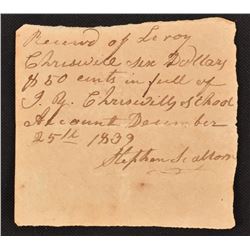 Receivd of Leroy
Chriswell six Dollars
& 50 cents in full of
J. Y. Chriswills school
Account December
25th 1839
Stephen Scallorn